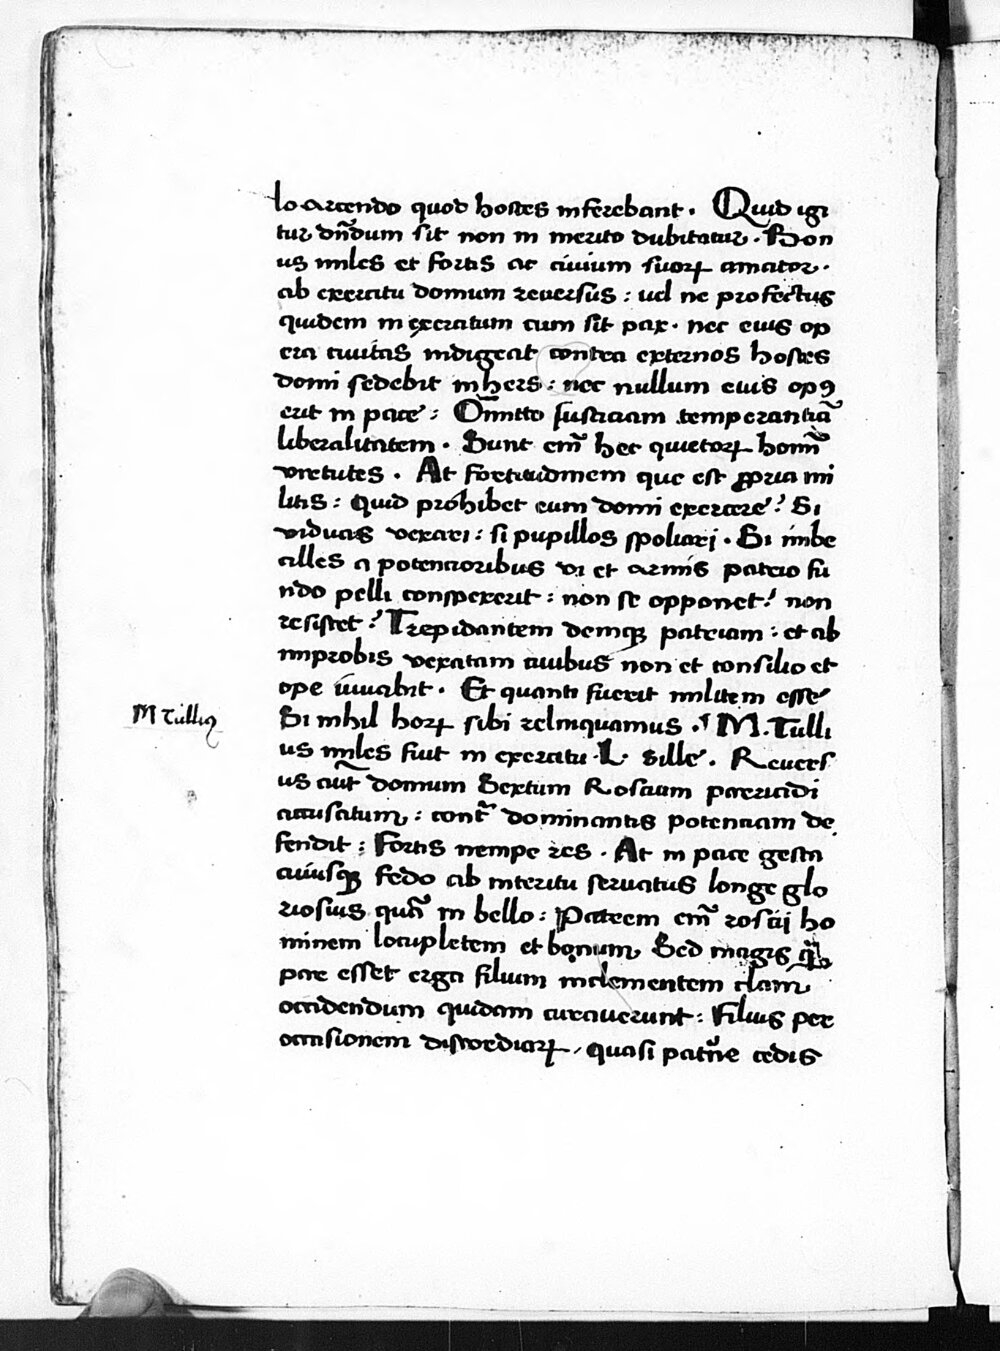 lo arcendo quod hostes inferebant. Quid igi
tur dn̄dum sit non in merito dubitatur. Bon
us miles et fortis ac civium suoꝝ amator.
ab exercitu domum reversus: vel ne profectus
quidem in exercitum cum sit pax. nec eius op
era civitas indigeat contra externos hostes
domi sedebit inhers: nec nullum eius opꝰ
erit in pace: Omitto iusticiam temperantiā
liberalitatem. Sunt em̄ hec quietoꝝ homī
virtutes. At fortitudinem que est ꝓpria mi
litis: quid prohibet eum domi exercere? Si
viduas vexari: si pupillos spoliari. Si imbe
cilles a potencioribus vi et armis patrio fu
ndo pelli conspexerit: non se opponet? non
resistet? Trepidantem demqꝫ patriam: et ab
improbis vexatam civibus non et consilio et
ope iuvabit. Et quanti fuerit militem esse
Si nihil hoꝝ sibi relinquamus. M. Tulli
M Tulliꝰ
us miles fuit in exercitu L. Sille. Revers
us aut̄ domum Sextum Roscium parricidi
accusatum: cont̄ dominantis potentiam de
fendit: Fortis nempe res. At in pace gesta
cuiusqꝫ fedo ab interitu servatus longe glo
riosius quā in bello: Patrem em̄ roscij ho
minem locupletem et bonum, Sed magis q̄
pare esset erga filium inclementem clam
occidendum quidam curaverunt: Filius per
occasionem discordiaꝝ, quasi pat̄ne cedis